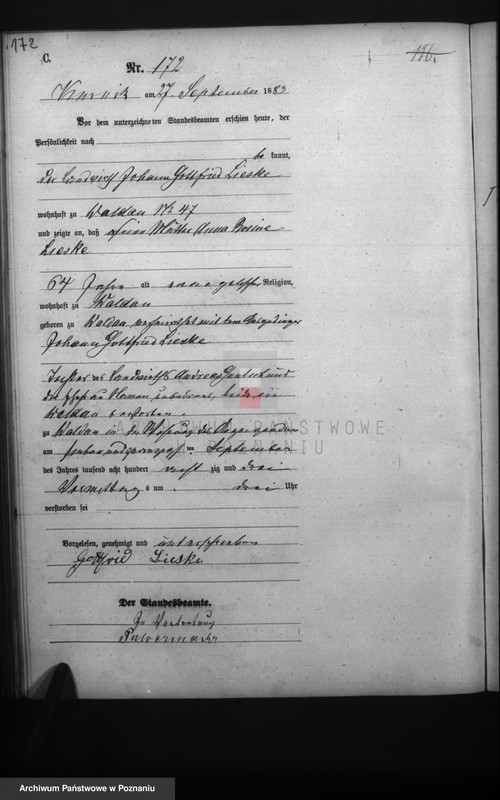 172
C.
136.
Nr. 172
am 27. September 1883
Vor dem unterzeichneten Standesbeamten erschien heute, der
Persönlichkeit nach
be kannt,
der Landwirth Johann Gottfried Lieske
wohnhaft zu Waldau No 47
und zeigte an, daß seine Mutter Anna Rosine
Lieske
64 Jahre alt evangelischer Religion,
wohnhaft zu Waldau
geboren zu Waldau, verheirathet mit dem
Johann Gottfried Lieske
Tochter des Landwirths Andreas und
der Ehefrau
Waldau verstorben
zu Waldau in der Wohnung des
um siebenundzwanzigsten September
des Jahres tausend acht hundert acht zig und drei
Vormittag s um drei Uhr
verstorben sei
Vorgelesen, genehmigt und unterschrieben
Gottfried Lieske
Der Standesbeamte.
In Vertretung
ARCHIWUM PAŃSTWOWE
W POZNANIU
Archiwum Państwowe w Poznaniu